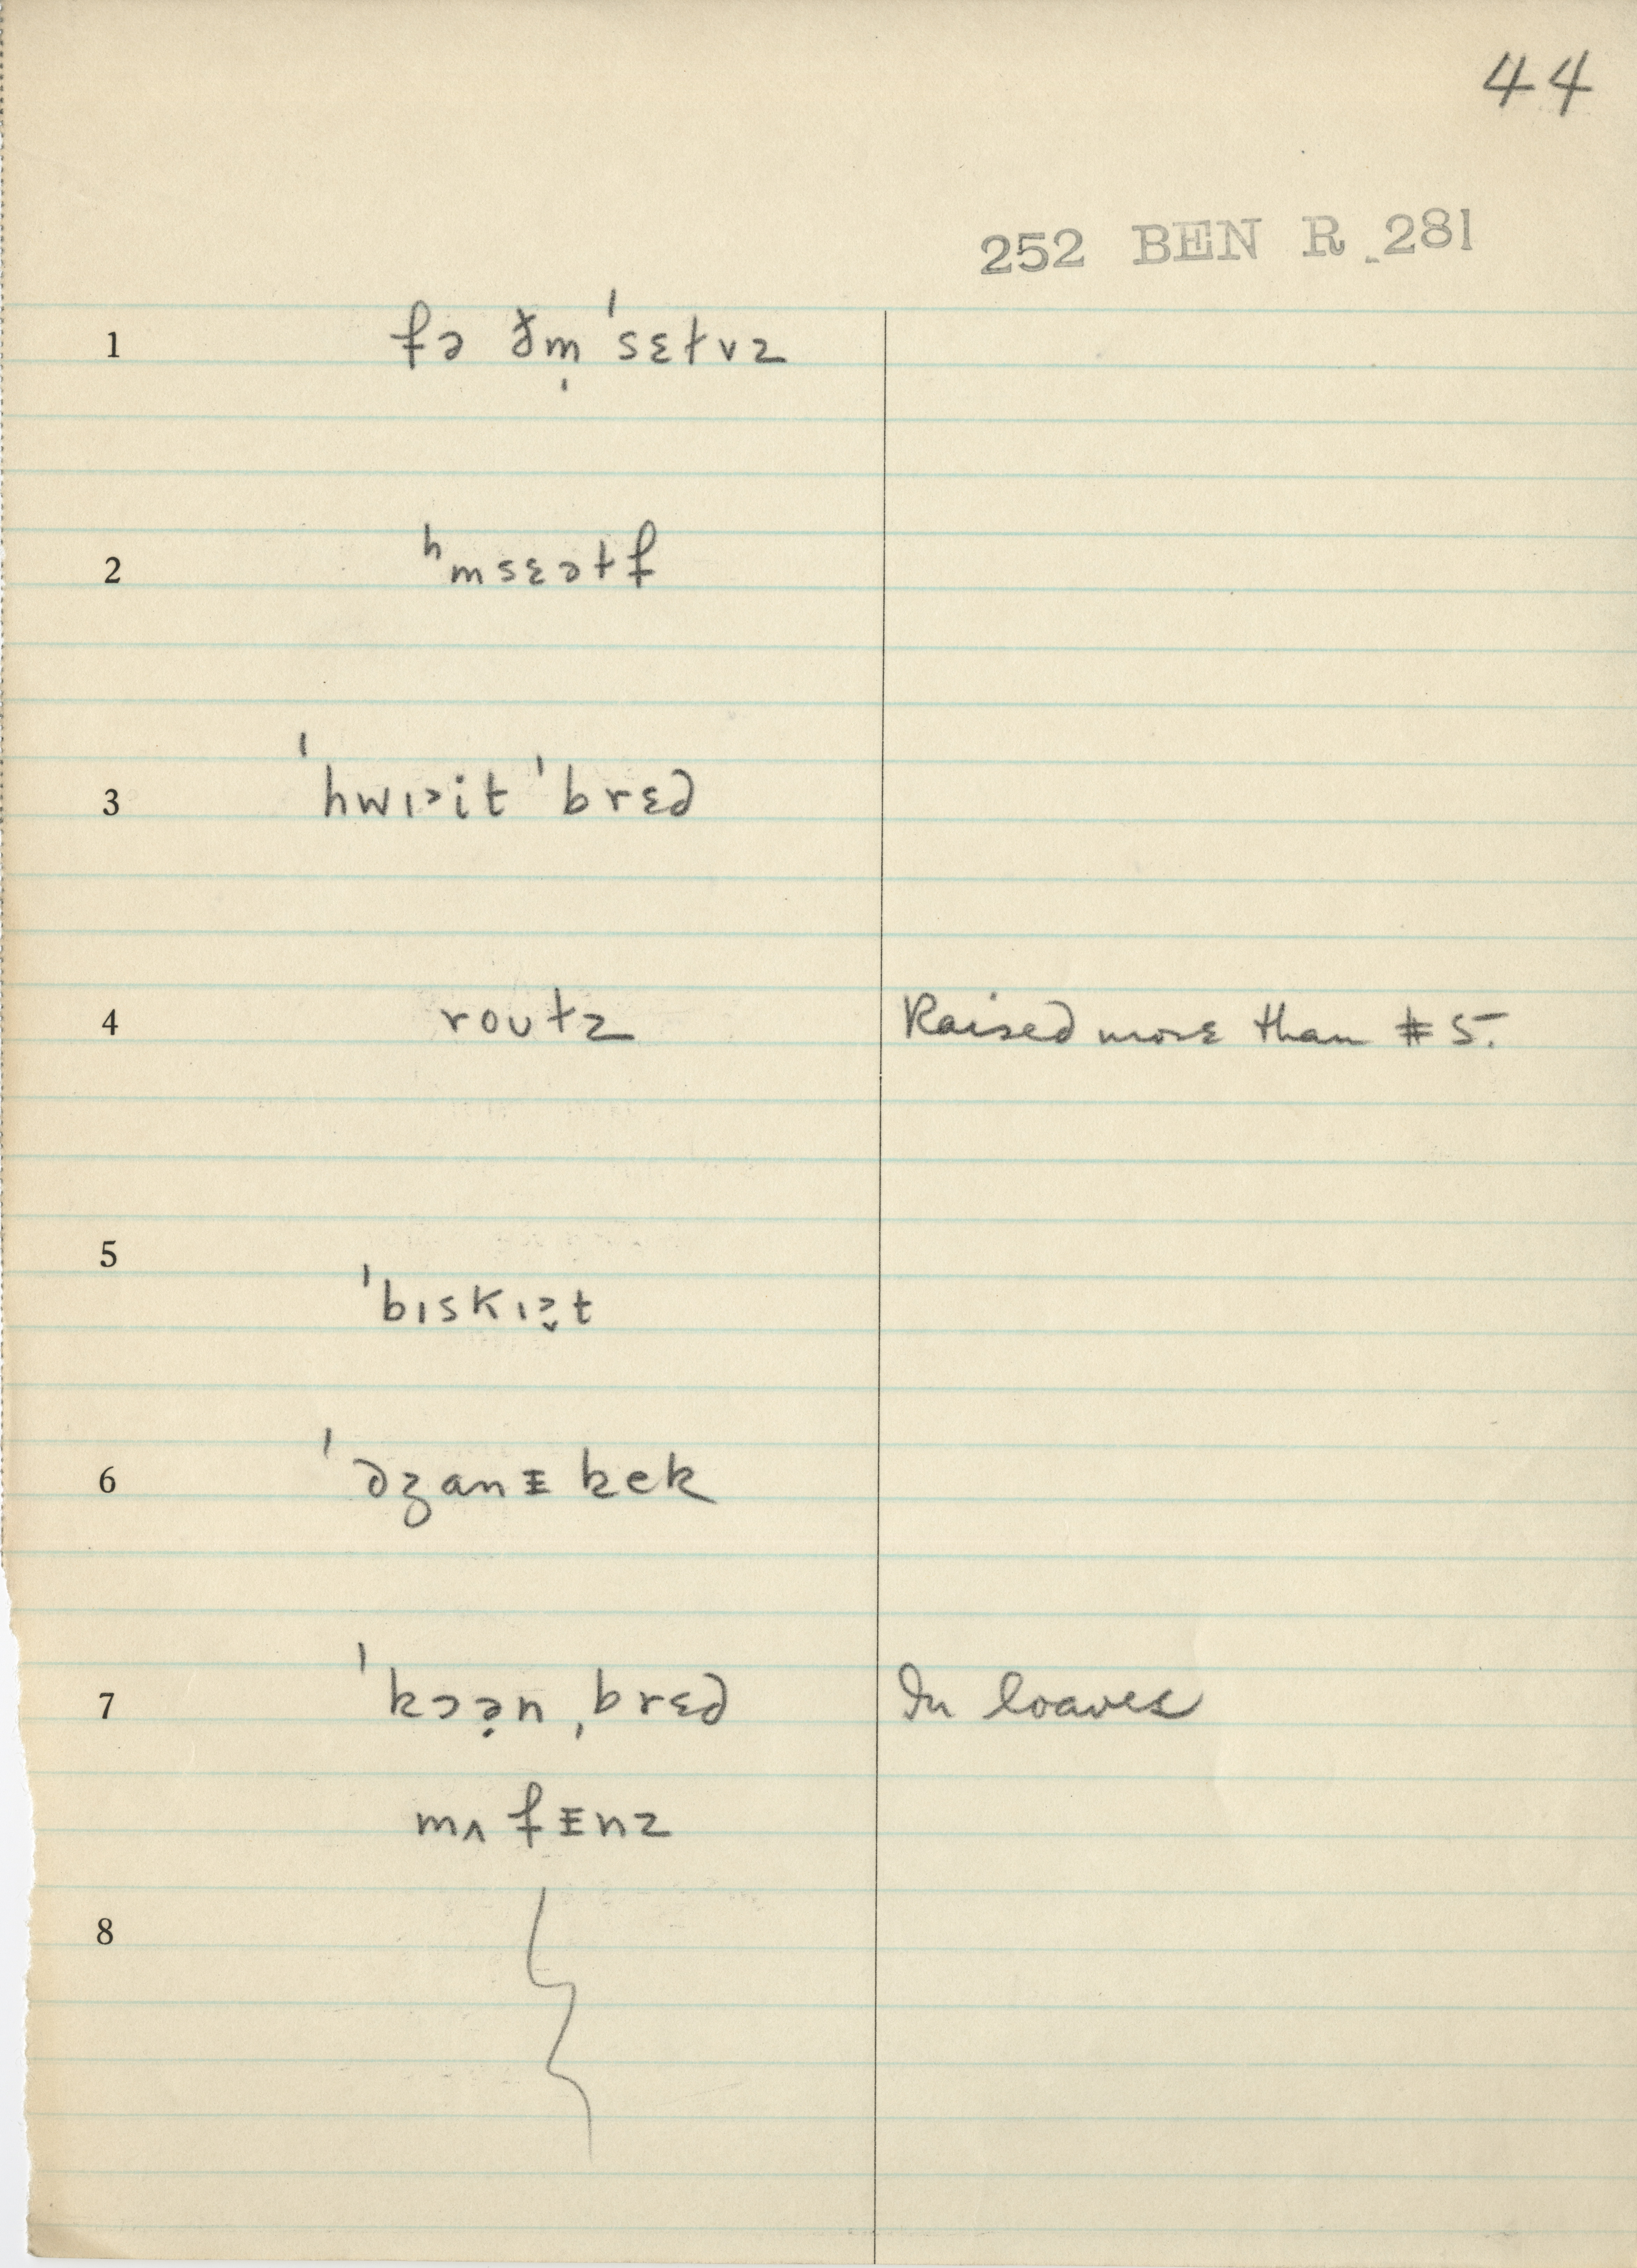 44
252 BEN R 281
1 fə ðm̩ ˈsɛtvz
2 ʰmsɛətf
3 ˈhwɪ˃it ˈbrɛd
4 routz Raised more than #5.
5 ˈbɪskɪ˃̬t
6 ˈdʒanɪ kek
7 ˈkɔə̣n ˌbrɛd In loaves
mʌfɪnz
8